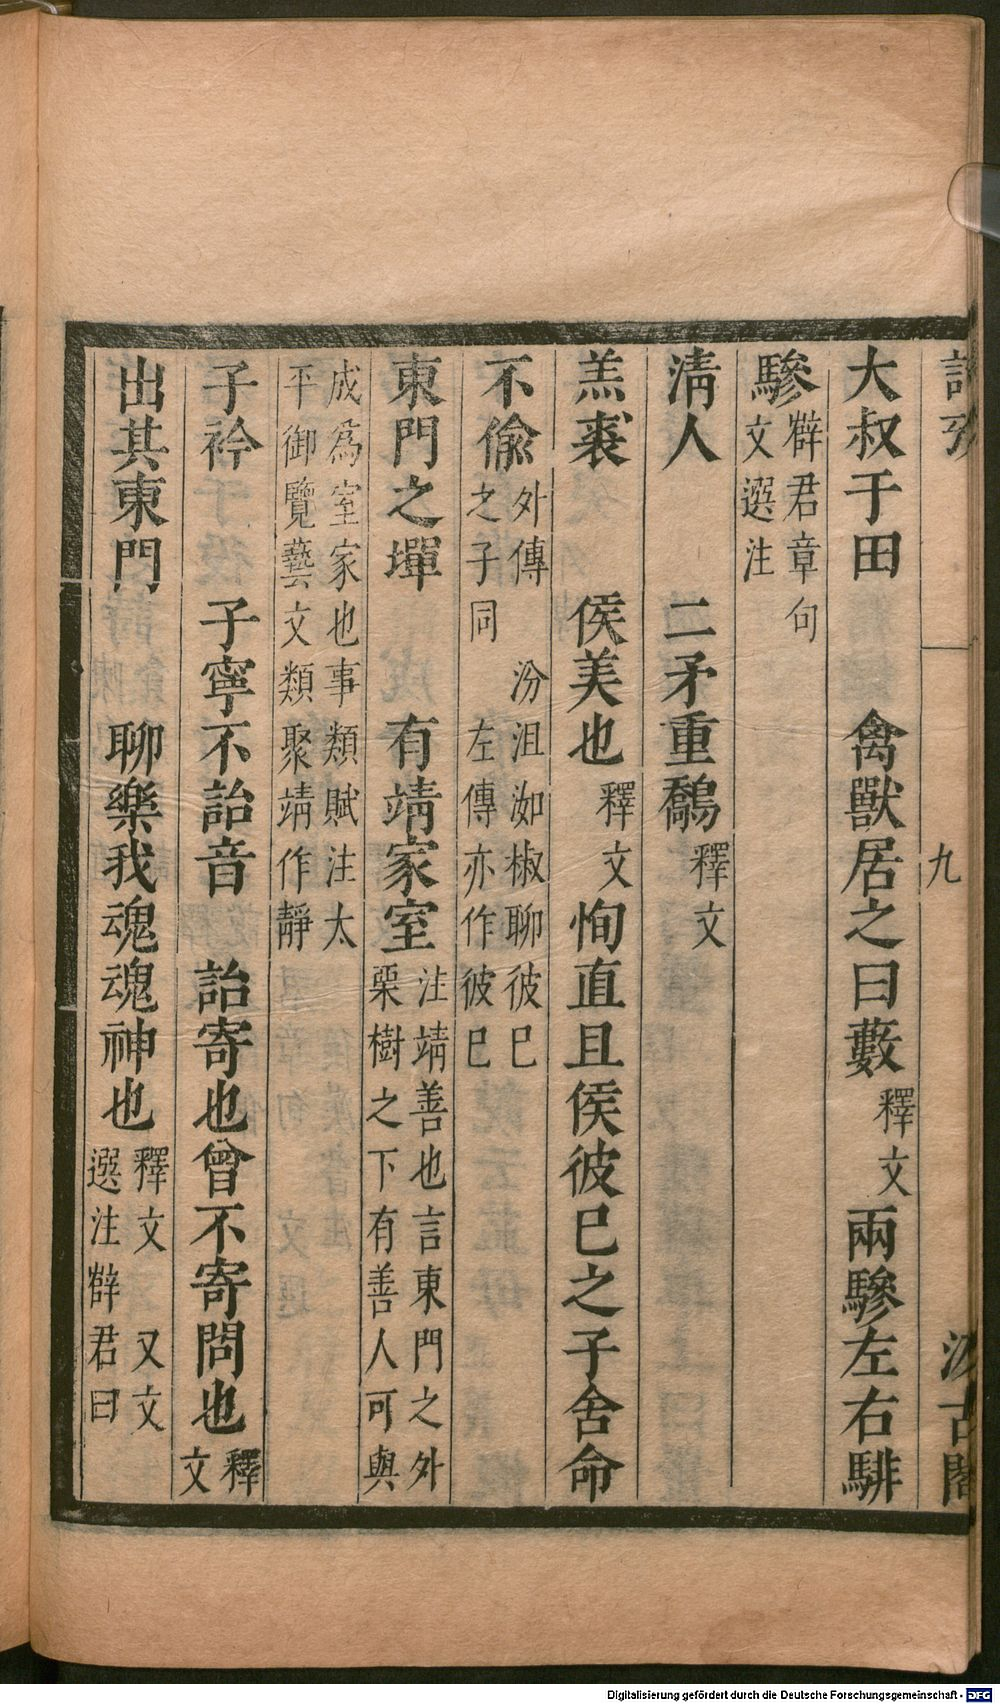 詩攷 九 汲古閣
大叔于田 禽獸居之曰藪 釋文 兩驂左右騑
驂 薛君章句 文選注
清人 二矛重鷮 釋文
羔裘 侯美也 釋文 恂直且侯彼已之子舍命
不偷 外傳 汾沮洳椒聊彼已 之子同 左傳亦作彼已
東門之墠 有靖家室 注靖善也言東門之外 栗樹之下有善人可與
成爲室家也事類賦注太 平御覽藝文類聚靖作靜
子衿 子寧不詒音 詒寄也曾不寄問也 釋文
出其東門 聊樂我魂魂神也 釋文 又文 選注薛君曰
Digitalisierung gefördert durch die Deutsche Forschungsgemeinschaft - DFG